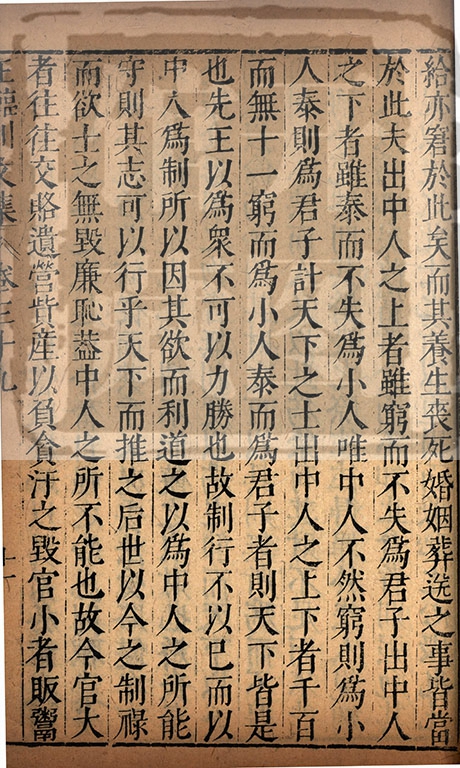 給亦窘於此矣而其養生喪死婚姻葬送之事皆當
於此夫出中人之上者雖窮而不失爲君子出中人
之下者雖泰而不失爲小人唯中人不然窮則爲小
人泰則爲君子計天下之士出中人之上下者千百
而無十一窮而爲小人泰而爲君子者則天下皆是
也先王以爲衆不可以力勝也故制行不以己而以
中人爲制所以因其欲而利道之以爲中人之所能
守則其志可以行乎天下而推之后世以今之制祿
而欲士之無毀廉恥葢中人之所不能也故今官大
者往往交賂遺營貲產以負貪汙之毀官小者販鬻
王臨川文集 卷三十九 十一